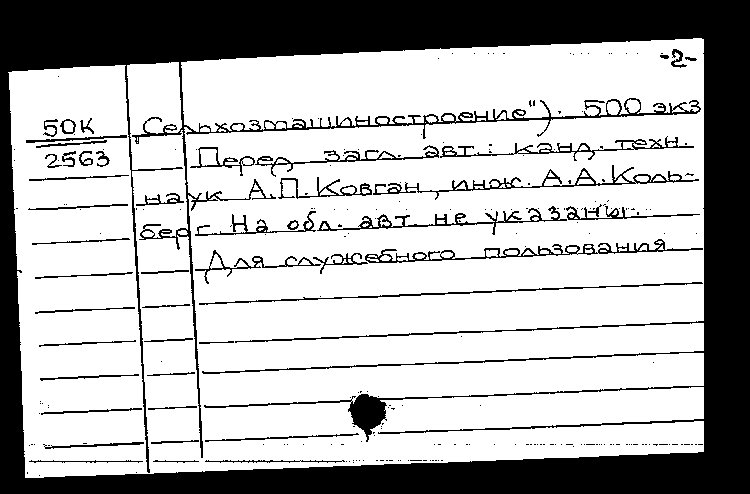 -2-
50К
2563
„Сельхозмашиностроение"). 500 экз
Перед загл. авт.: канд. техн.
наук А.П. Ковган, инж. А.А. Коль-
берг. На обл. авт. не указаны.
Для служебного пользования